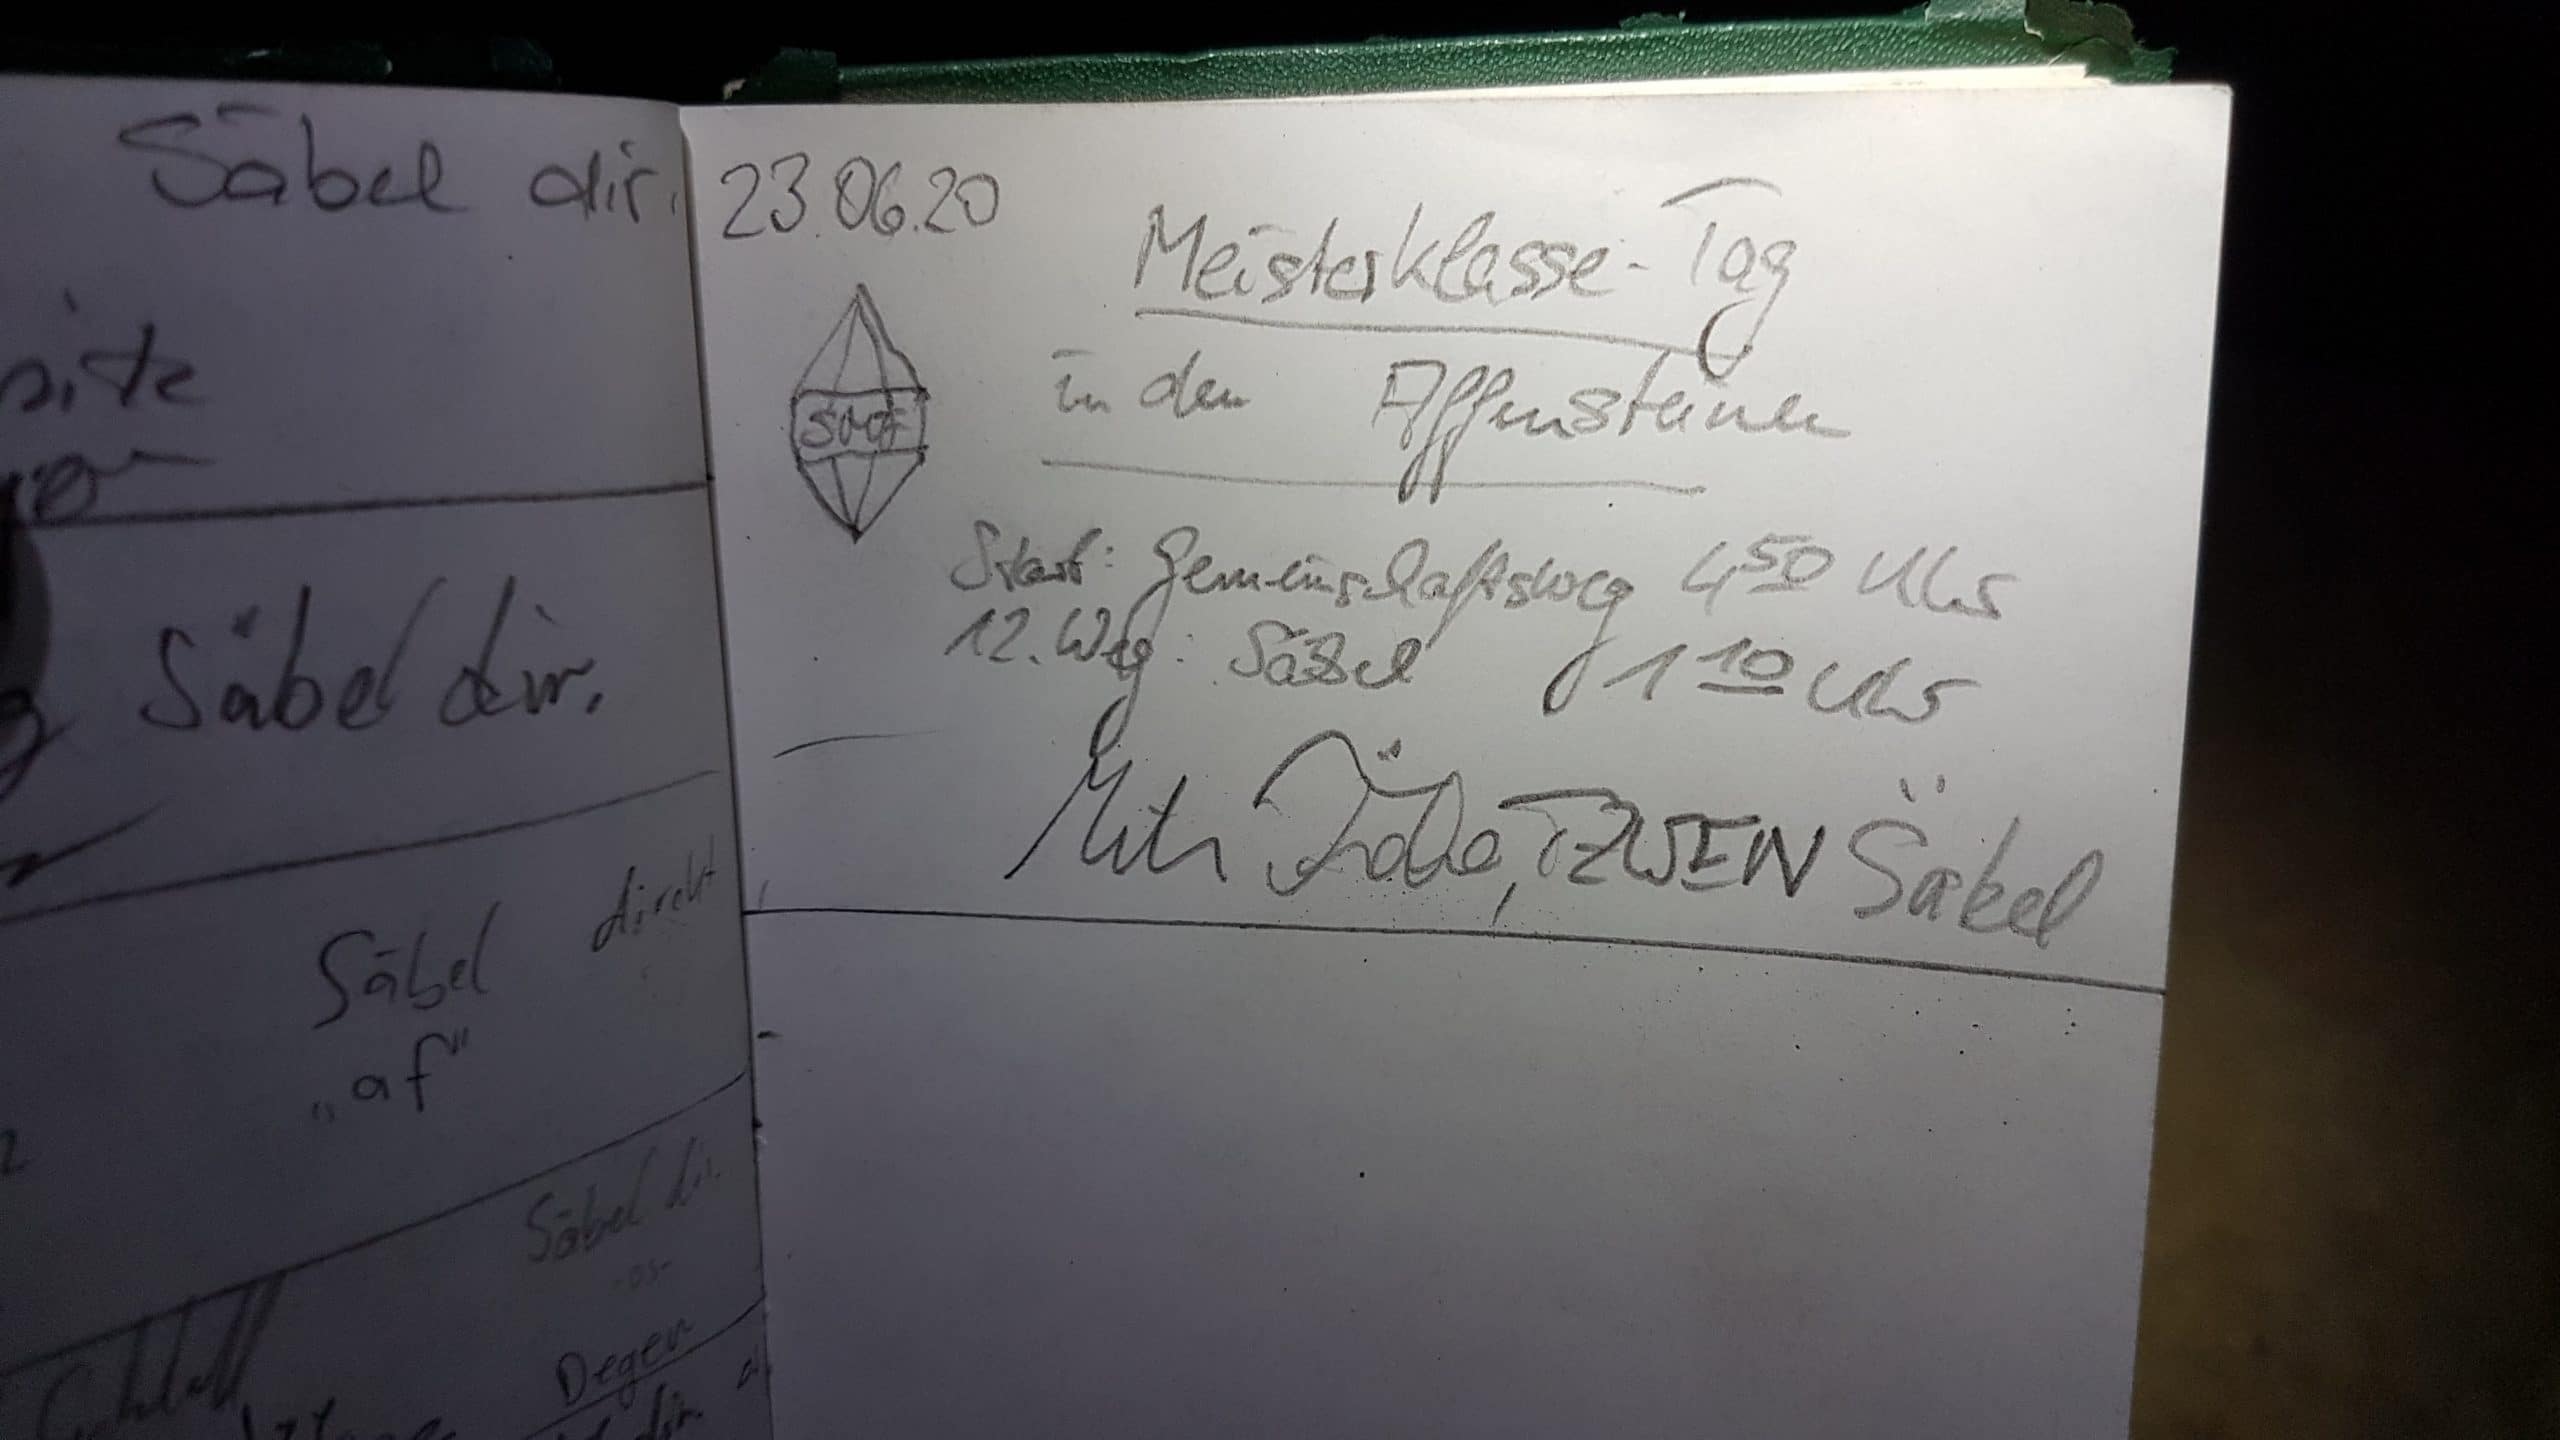 Säbel dir.
Säbel dir.
Säbel direkt
„af“
Säbel dir.
-os-
Degen
dir.
23.06.20
Meisterklasse-Tag
in den Affensteinen
Start: Gemeinschaftsweg 4⁵⁰ Uhr
12. Weg: Säbel 1¹⁰ Uhr
TZWEIN Säbel